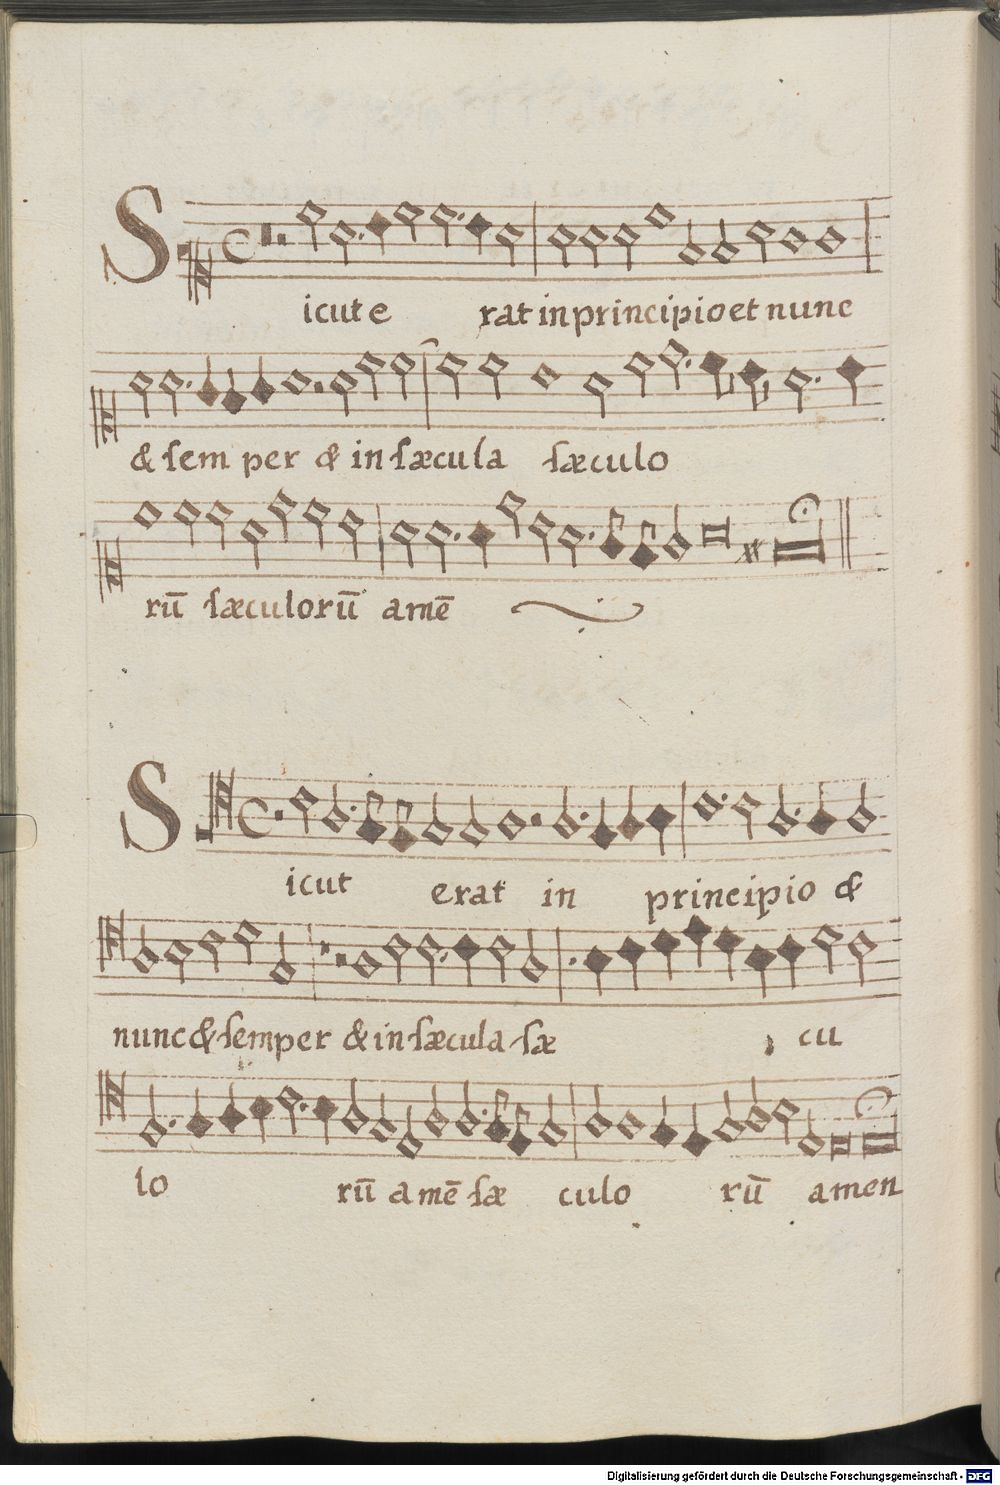 Sicut e rat in principio et nunc
& semper & in sæcula sæculo
rū sæculorū amē
Sicut erat in principio &
nunc & semper & in sæcula sæ cu
lo rū amē sæ culo rū amen
Digitalisierung gefördert durch die Deutsche Forschungsgemeinschaft - DFG